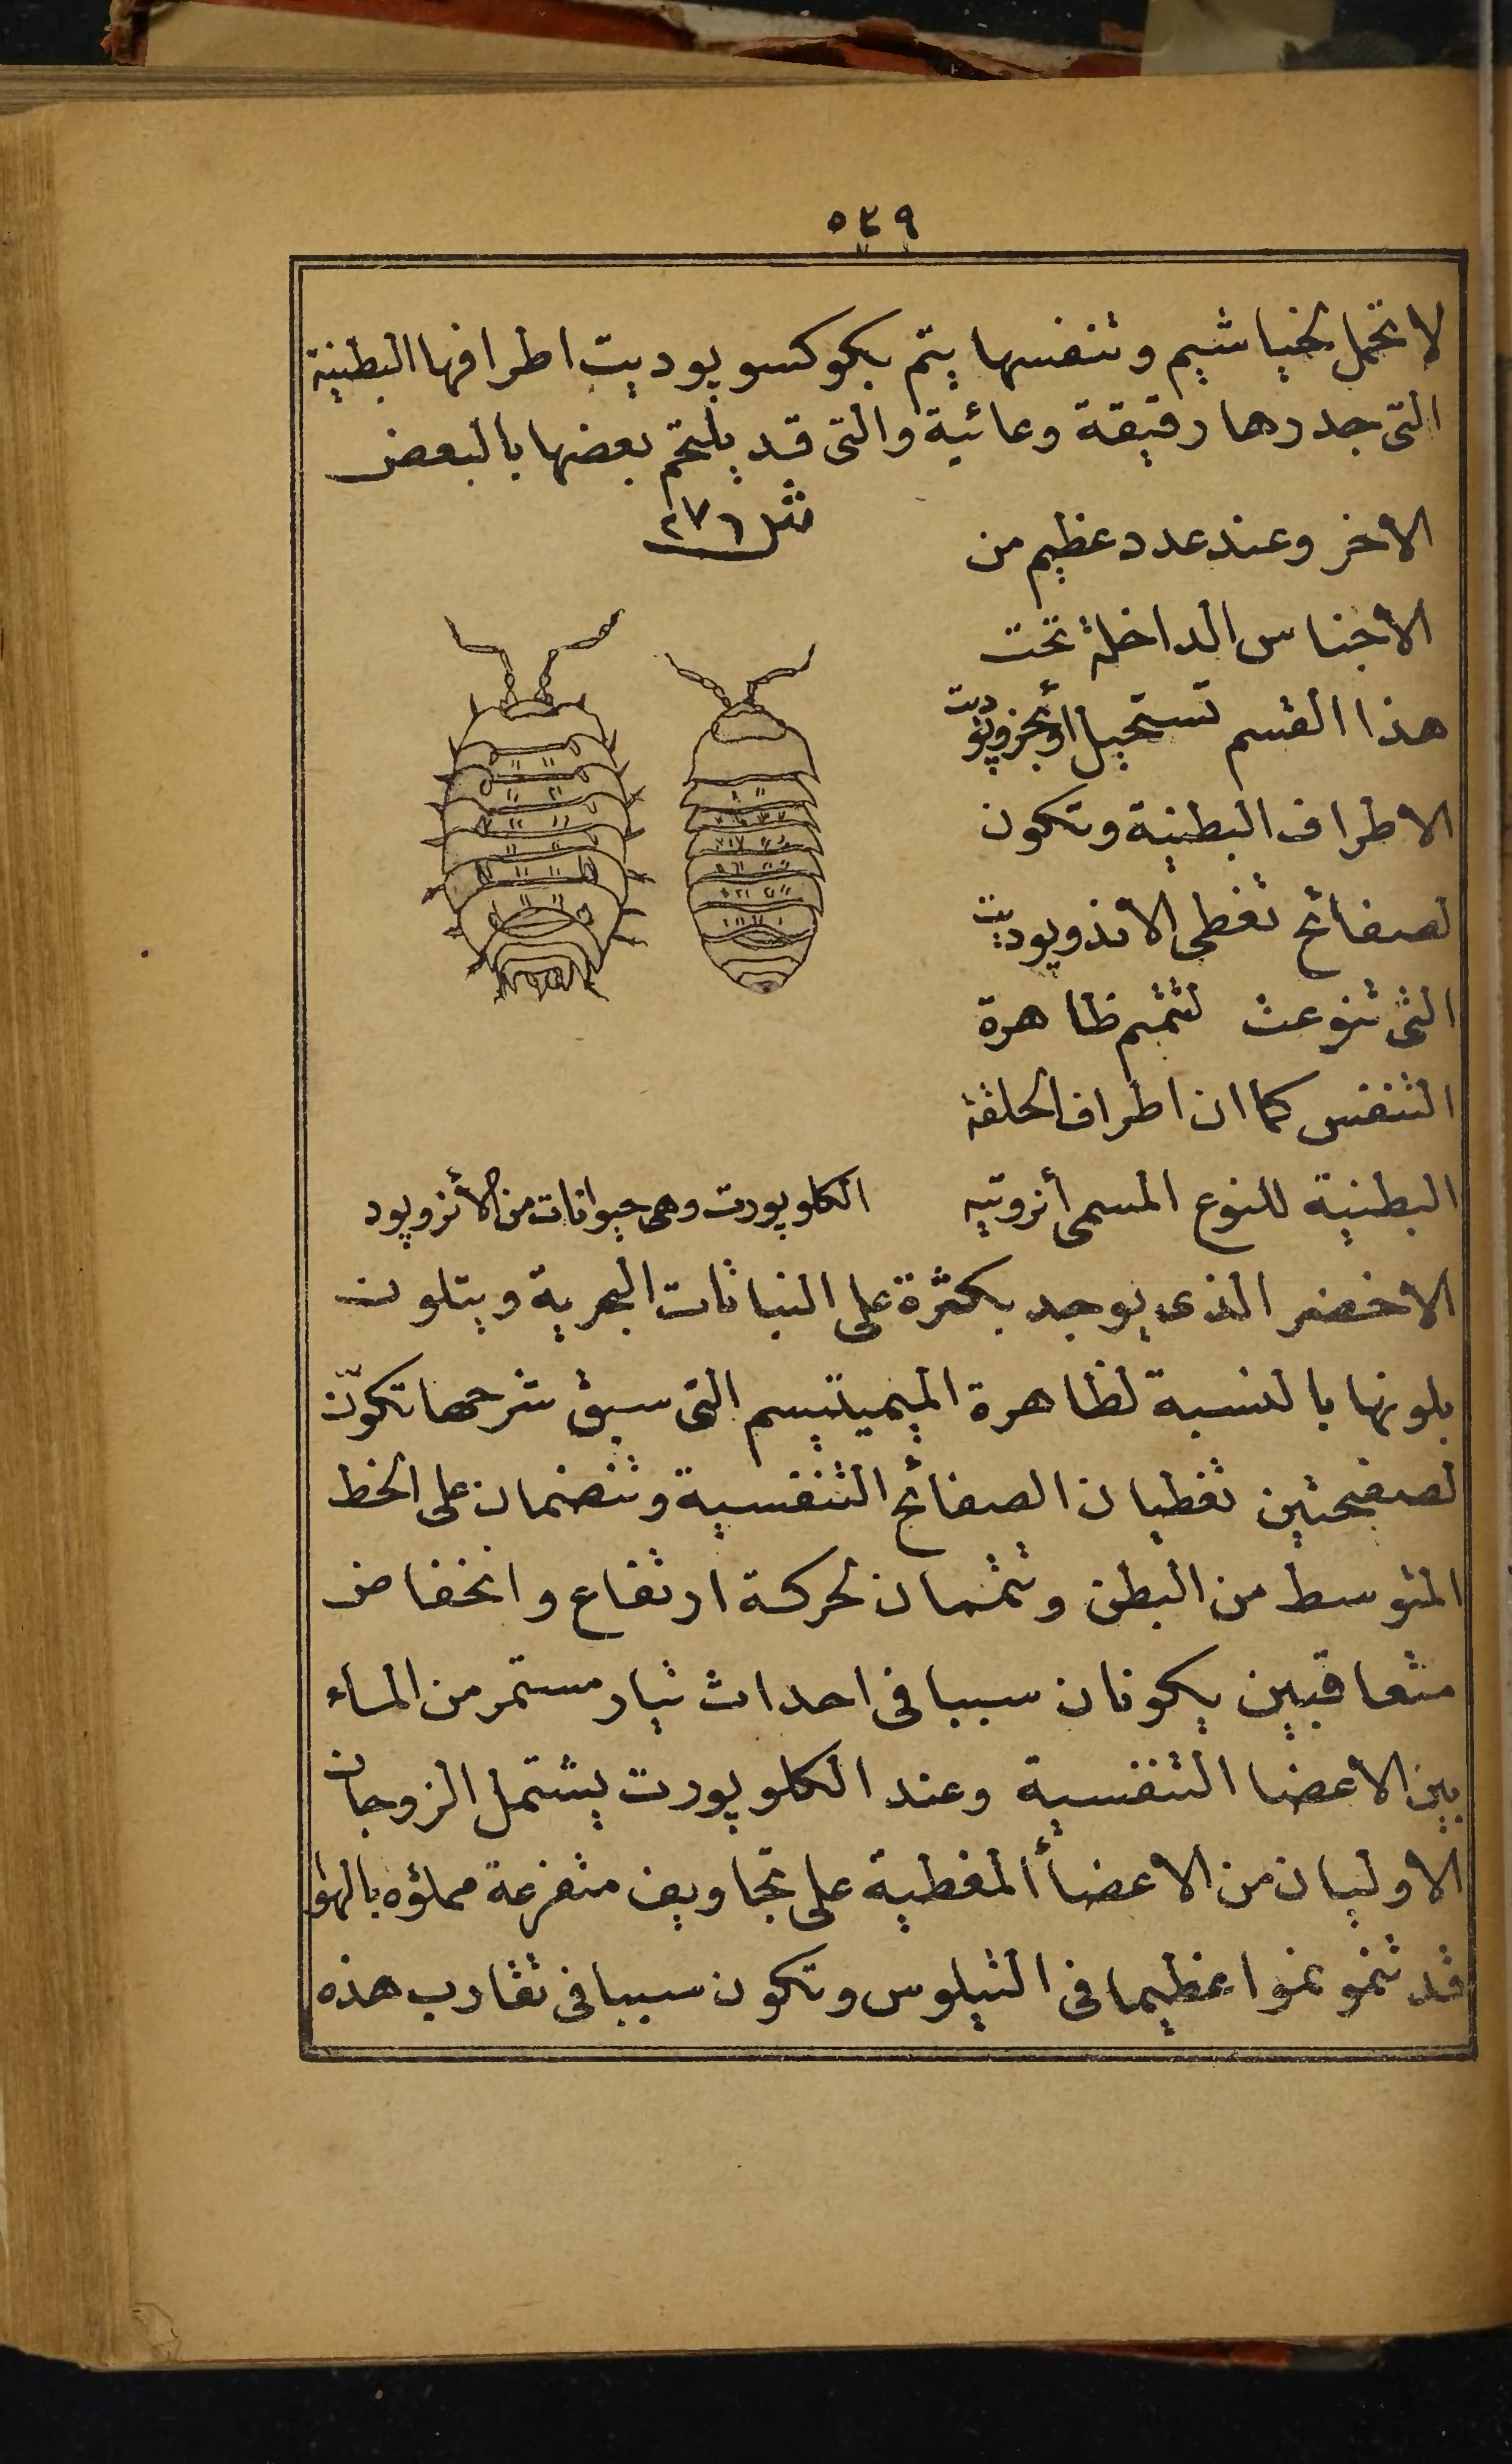 ٥٣٩
لا تحمل لخياشيم وتنفسها يتم بكوكسوبوديت اطرافها البطنية
التى جدرها رقيقة وعائية والتى قد يلتحم بعضها بالبعض
شكل ٢٧٦
الاخر وعند عدد عظيم من
الأجناس الداخلة تحت
هذا القسم تستحيل أوبجزوبوديت
الاطراف البطنية وتكون
لصفائح تغطى الاندوبوديت
التى تنوعت لتتمم ظاهرة
التنفس كما ان اطراف الحلقة
البطنية للنوع المسمى أنزوتيه
الكلوبورت وهى حيوانات من الأنزوبود
الاخضر الذى يوجد بكثرة على النباتات البحرية ويتلون
بلونها بالنسبة لظاهرة الميميتيسم التى سبق شرحها تكوّن
لصفيحتين تغطيان الصفائح التنفسية وتنضمان على الخط
المتوسط من البطن وتتمان لحركة ارتفاع وانخفاض
متعاقبين يكونان سببا فى احداث تيار مستمر من الماء
بين الاعضا التنفسية وعند الكلوبورت يشتمل الزوجان
الاوليان من الاعضاأ المغطية على تجاويف متفرعة مملؤه بالهوا
قد تنمو نموا عظيما فى التيلوس وتكون سببا فى تقارب هذه